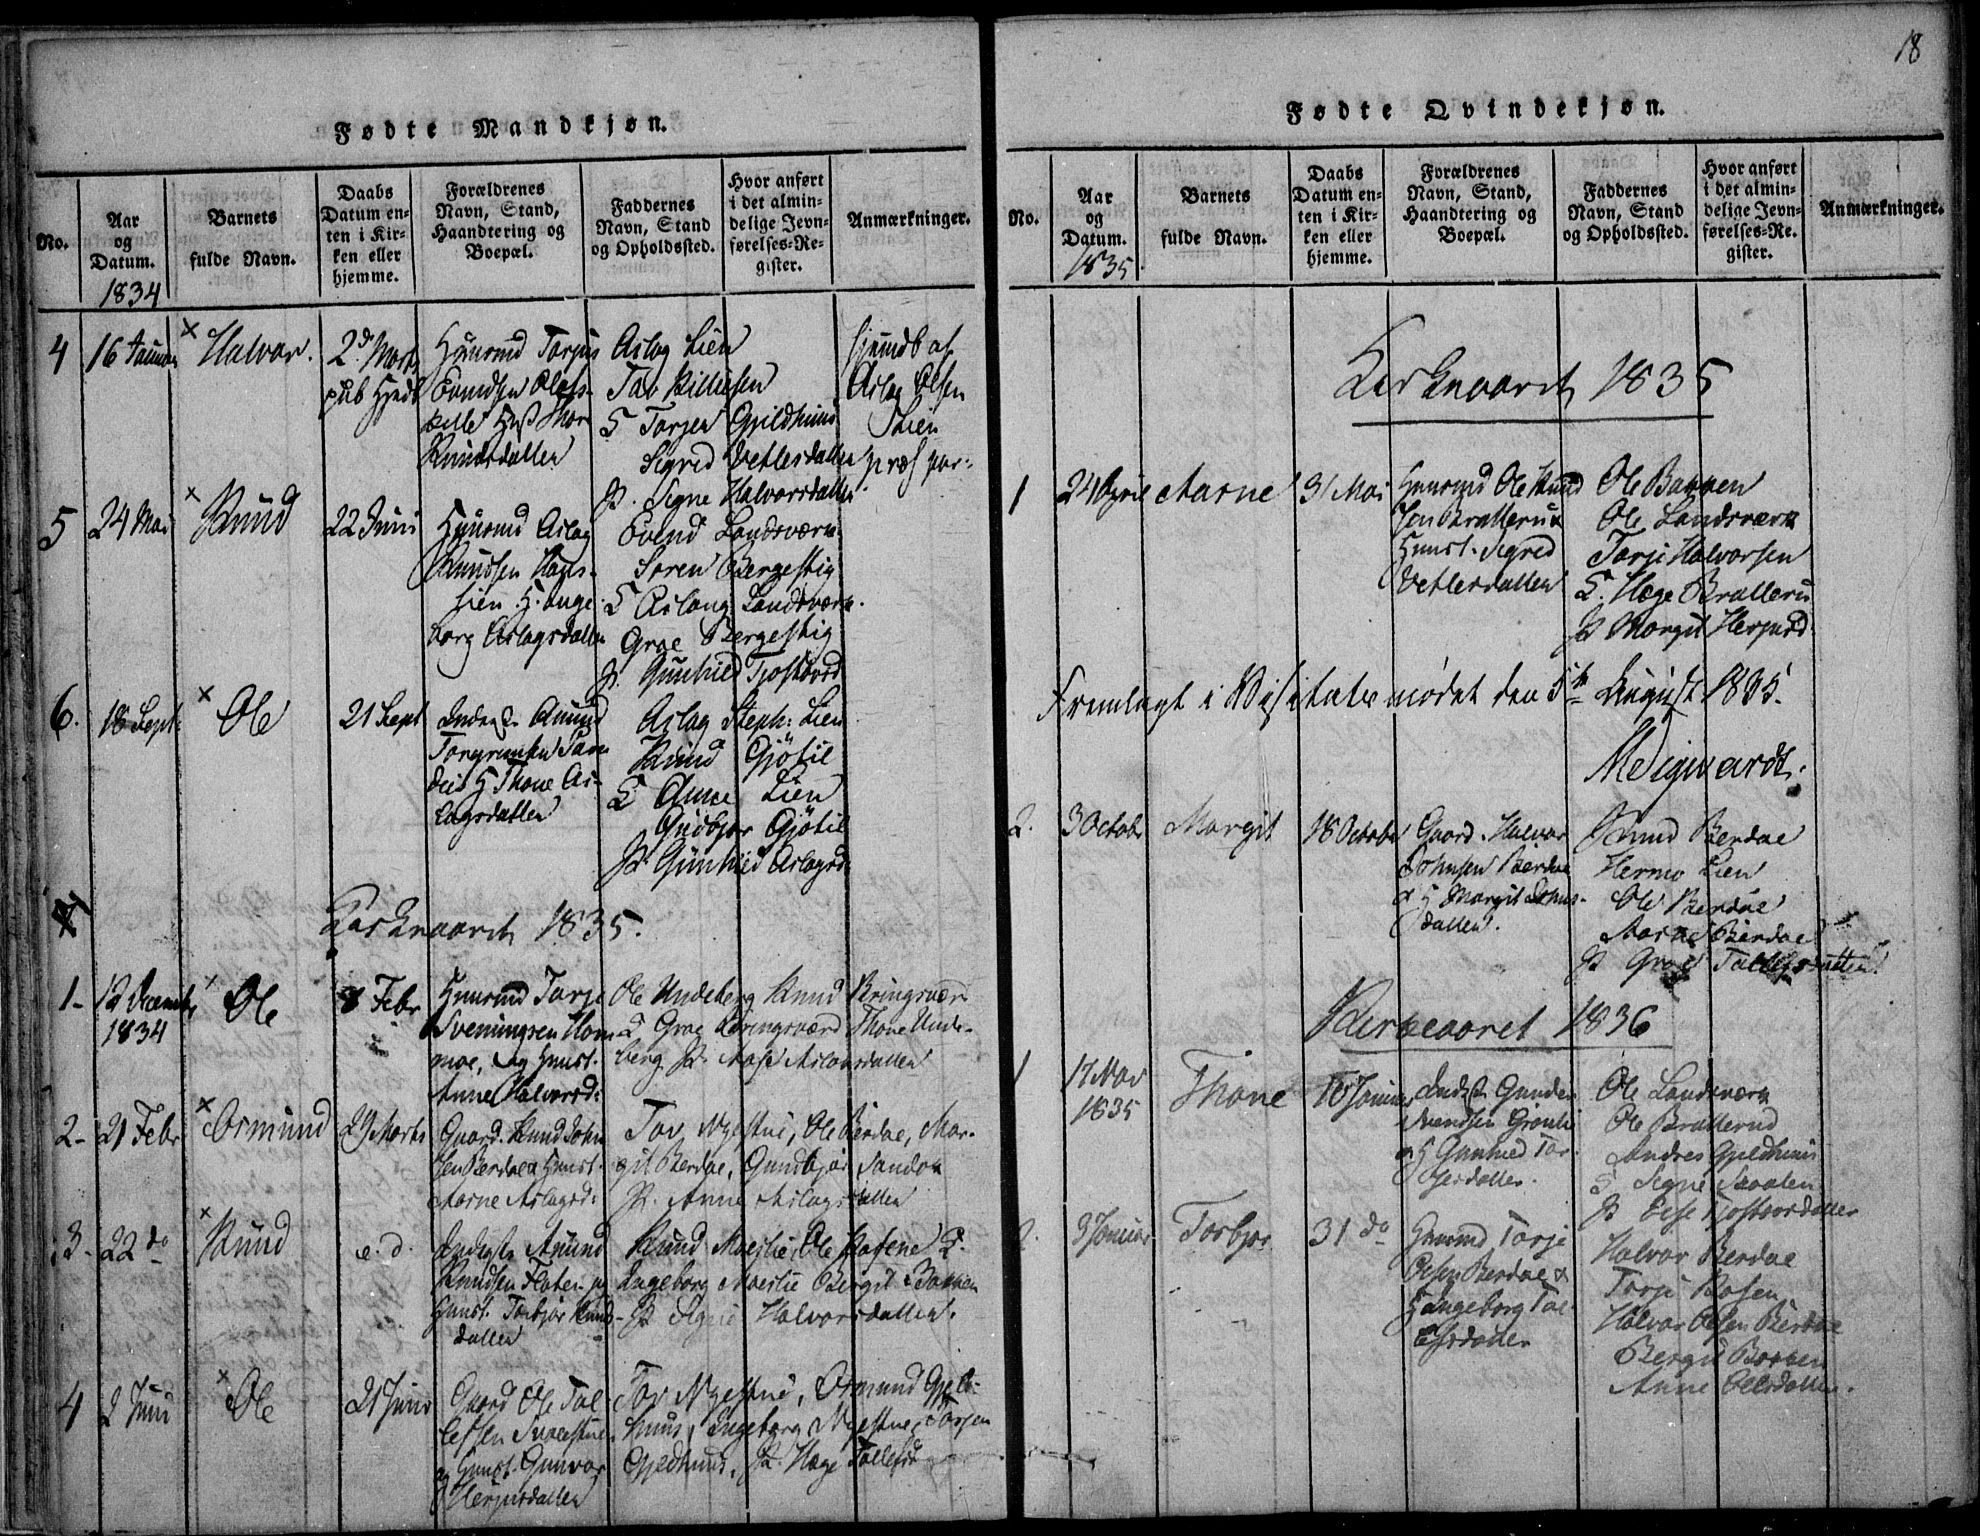 18
Fødte Mandkjøn.
No.
Aar og Datum.
1834
Barnets fulde Navn.
Daabs Datum enten i Kirken eller hjemme.
Forældrenes Navn, Stand, Haandtering og Boepæl.
Faddernes Navn, Stand og Opholdssted.
Hvor anført i det almindelige Jevnførelses-Register.
Anmærkninger.
4
16 Januar
Halvor.
2d Marts
pub Hjedb
Huusmd Torjus
Evindsen
Knudsdatter
Aslag Lien
Tov
Torjer Gjeldhuus
Sigred Vetlesdatter
Signe Halvorsdatter
hjemdb af
Aslag Olsen
Lien
5
24 Mai
Knud
22 Juni
Huusmd Aslag
Knudsen
lien H. Inge-
borg Aslagsdatter
Evend Landsværk
Søren Bergestig
Aslaug Landsværk
Groe Bergestig
Gunhild Tjostolvsd
6.
18 Sept.
Ole
21 Sept
Inderst Amund
H Thone As-
lagsdatter
Aslag Steph: Lien
Knud Gjøtil
Anne Lien
Gudbjør Gjøtil
Gunhild Aslagsd:
Kirkeaaret 1835.
1-
12 December
1834
Ole
8 Febr
Huusmd Torje
Sveningsen Hom-
moe, og Huust.
Anne Halvorsd:
Ole Undeberg Knud Kringsvær
Groe Kringsværd Thone Unde-
berg Aase Aslaksdatter
2-
21 Febr
Ormund
29 Marts
Gaard. Knud John
sen Berdae & Huust.
Aasne Aslagsd:
Tov Nyestue, Ole Berdae, Mar-
git Berdae, Gundbjør Sandok
Anne Aslagsdatter
3-
22 do
Knud
e. d.
Inderste Amund
Knudsen Flaten og
Huust. Torbjør Knuds-
datter
Knud Moerlie Ole
Ingeborg Moerlie Bergit Bakken
Signe Halvorsdatter.
4
2 Juni
Ole
21 Juni
Gaard Ole Tol
lefsen
og Huust. Gunvor
Herjusdatter
Tov Nyestue, Ormund Gjeld-
huus, Ingeborg Nyestue, Torjer
Gjeldhuus, Hæge Tollefsd
Fødte Qvindekjøn.
No.
Aar og Datum.
1835.
Barnets fulde Navn.
Daabs Datum enten i Kirken eller hjemme.
Forældrenes Navn, Stand, Haandtering og Boepæl.
Faddernes Navn, Stand og Opholdssted.
Hvor anført i det almindelige Jevnførelses-Register.
Anmærkninger.
Kirkeaaret 1835
1
24 April
Aasne
31 Mai
Huusmd Ole Knud
sen Brallerud &
Huust. Sigred
Vetlesdatter
Ole Bakken
Ole Landsværk
Torje Halvorsen
Hæge Brallerud
Margit Herjusd:
Fremlagt i Visitatsmødet den 5te August 1835.
2.
3 Octobr
Margit
18 Octobr
Gaard. Halvor
Johnsen Berdae
& H Margit Johns-
datter.
Knud Berdae
Hermo Lien
Ole Berdae
Aasne Berdae
Groe Tollefsdatter.
Kirkeaaret 1836
1
17 Nov
1835
Thone
10 Januar
Inderst Gunder
Svendsen Grønli
og H Gunhild Tor-
jersdatter.
Ole Landsværk
Ole Brallerud
Andres Gjeldhuus
Signe Skaalen
Else Tjostolvsdatter
2.
3 Januar
Torbjør
31 do
Huusmd Torje
Olsen Berdae &
H Ingeborg Tol-
lefsdatter
Halvor Berdae
Torje Bosen
Halvor Olsen Berdae
Bergit Bakken
Anne Olsdatter.